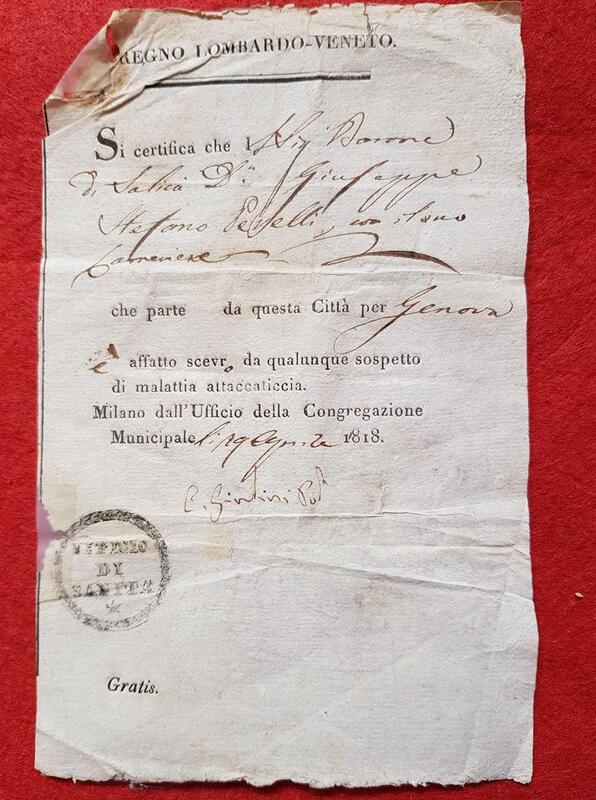 REGNO LOMBARDO-VENETO.
Si certifica che l Sig Barone
di Salicà Dn Giuseppe
Stefano con il suo
Cameriere
che parte da questa Città per Genova
è affatto scevro da qualunque sospetto
di malattia attaccaticcia.
Milano dall'Ufficio della Congregazione
Municipale li 19 1818.
UFFICIO
DI
SANITÀ
Gratis.